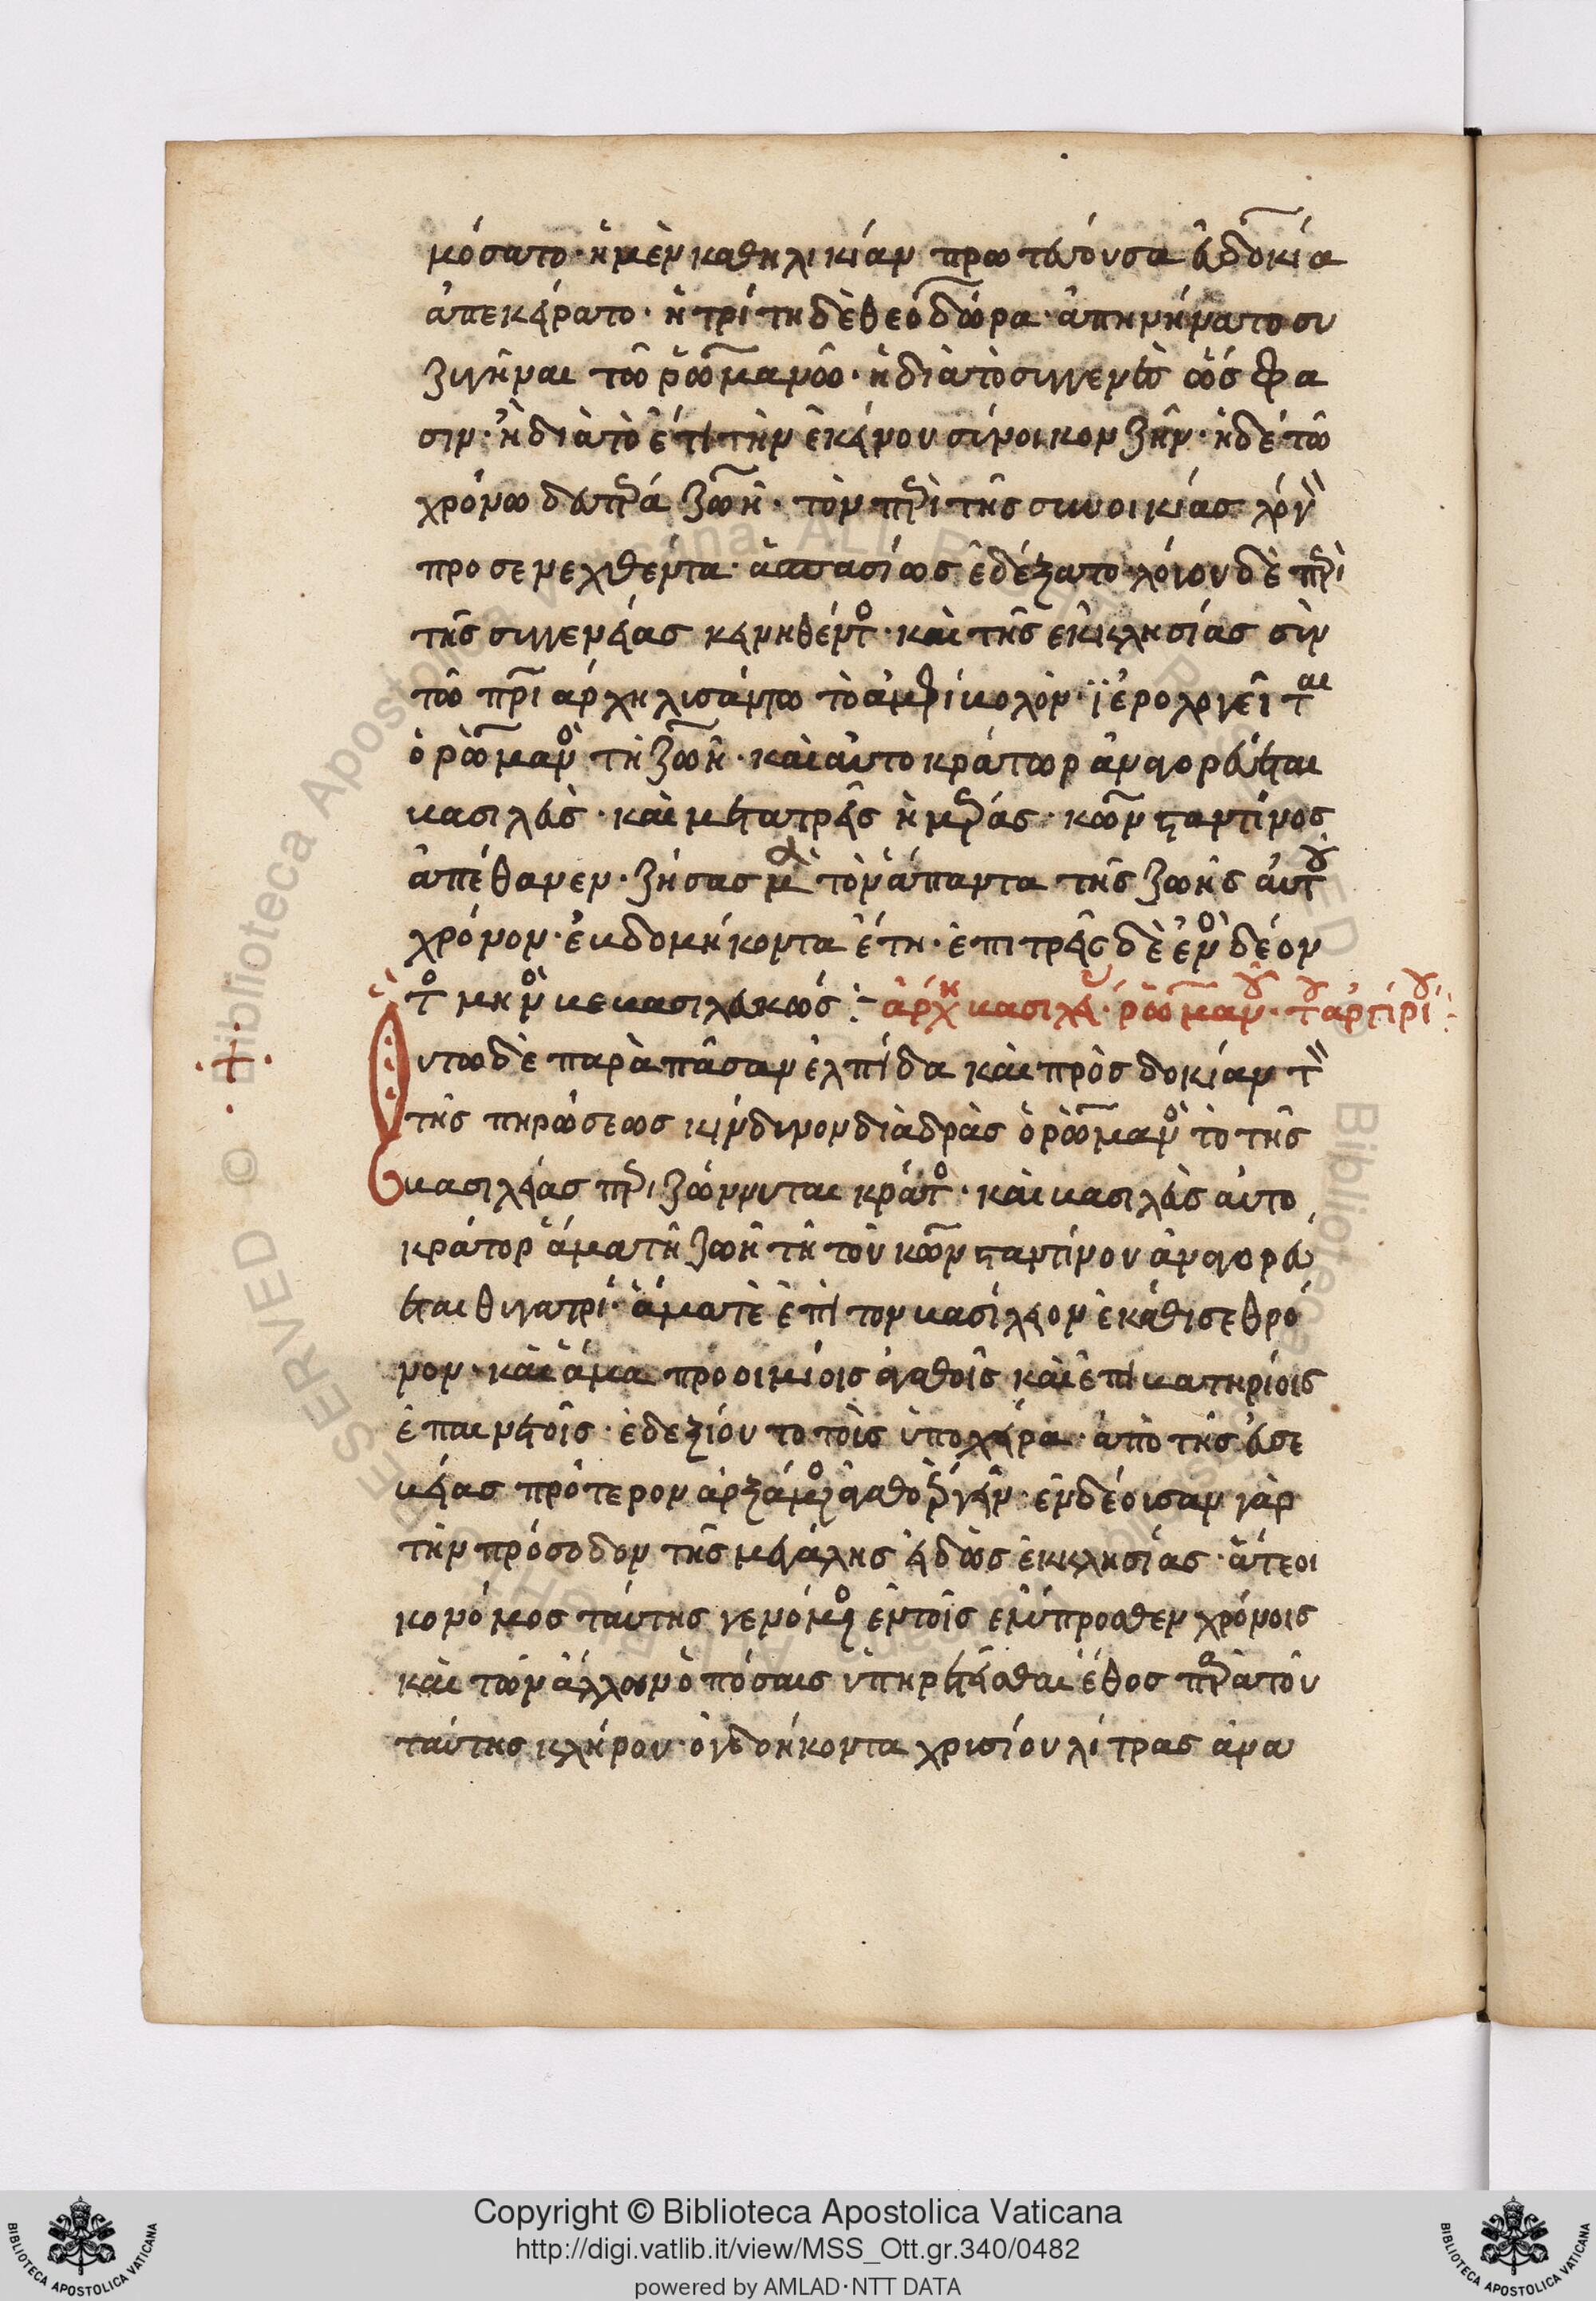 μόσατο· ἡ μὲν καθηλικίαν πρωτεύουσα εὐδοκία
ἀπεκείρατο· ἡ τρίτη δὲ θεοδώρα· ἀπηνήνατο συ
ζυγῆναι τῶ ῥωμανῶ· ἢ διὰ τὸ συγγενὲς ὥς φα
σιν· ἢ διὰ τὸ ἔτι τὴν ἐκείνου σύνοικον ζῆν· ἡ δέ τῶ
χρόνω δευτέρα ζωὴ· τὸν περὶ τῆς συνοικίας λόγον
προσενεχθέντα· ἀσπασίως ἐδέξατο· λόγου δὲ περὶ
τῆς συγγενείας κινηθέντος· καὶ τῆς ἐκκλησίας σὺν
τῶ πατριάρχη λυσάντων τὸ ἀμφίβολον· ϊερολογεῖται
ὁ ῥωμανὸς τῆ ζωῆ· καὶ αὐτοκράτωρ ἀναγορεύεται
βασιλεὺς· καὶ μετὰ τρεῖς ἡμέρας· κωνσταντίνος
ἀπέθανεν· ζήσας μὲν τὸν ἅπαντα τῆς ζωῆς αὐτοῦ
χρόνον· ἑβδομήκοντα ἔτη· ἐπὶ τρεῖς δὲ ἐνδέον
τος μηνὸς βεβασιλευκώς :– ἀρχὴ βασιλείας· ῥωμανοῦ· τοῦ ἀργυροῦ :
οὕτω δὲ παρὰ πᾶσαν ἐλπίδα καὶ πρὸσδοκίαν τὸν
τῆς πηρώσεως κίνδυνον διὰδρὰς ὁ ῥωμανὸς τὸ τῆς
βασιλείας περιζώννυται κράτος· καὶ βασιλεὺς αὐτο
κράτορ ἅμα τῆ ζωῆ τῆ τοῦ κωνσταντίνου ἀναγορεύ
εται θυγατρί· ἅμα τὲ ἐπὶ τον βασίλειον ἐκάθισε θρό
νον· καὶ ἅμα προοιμίοις ἀγαθοῖς καὶ ἐπιβατηρίοις
ἐπαινετοῖς· ἐδεξιοῦτο τοῖς ὑποχείρα· ἀπὸ τῆς εὐσε
βείας πρότερον ἀρξάμενος ἀγαθοεργεῖν· ἐνδέουσαν γὰρ
τὴν πρόσοδον τῆς μεγάλης εἰδὼς ἐκκλησίας· ἅτε οι
κονόμος ταύτης γενόμενος ἐν τοῖς ἔμπροσθεν χρόνοις
καὶ τῶν ἄλλων ὁπόσαις ὑπηρετεῖσθαι ἔθος παρὰ τοῦ
ταύτης κλήρου· ὀγδοήκοντα χρυσίου λίτρας ἀνα
Copyright © Biblioteca Apostolica Vaticana
http://digi.vatlib.it/view/MSS_Ott.gr.340/0482
powered by AMLAD·NTT DATA